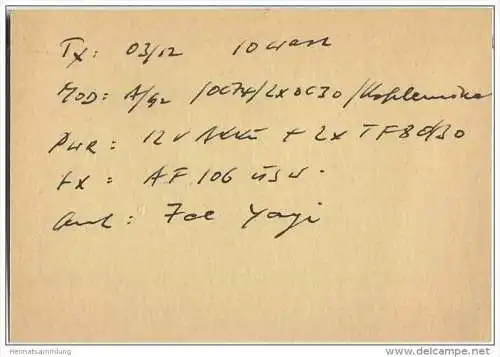 Tx: 03/12 10 Watt
MOD: A/g2 /OC74/2xOC30/Kohlemike
PWR: 12V AKKU + 2x TF80/30
rx: AF 106 usw.
Ant: 7el Yagi
Heimatsammlung
www.delcampe.net